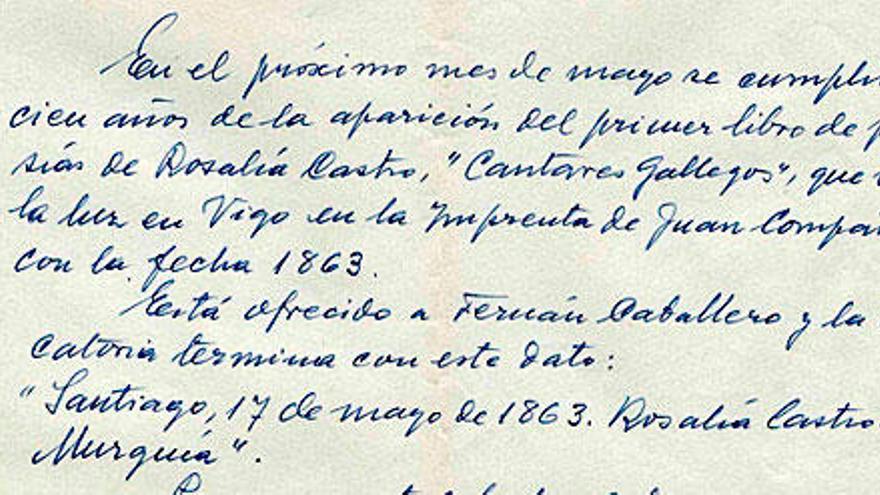 En el próximo mes de mayo se cumpl
cien años de la aparición del primer libro de p
sías de Rosalía Castro, "Cantares Gallegos", que
la luz en Vigo en la Imprenta de Juan Compa
con la fecha 1863.
Está ofrecido a Fernán Caballero y la
catoria termina con este dato:
"Santiago, 17 de mayo de 1863. Rosalía Castro
Murguía".